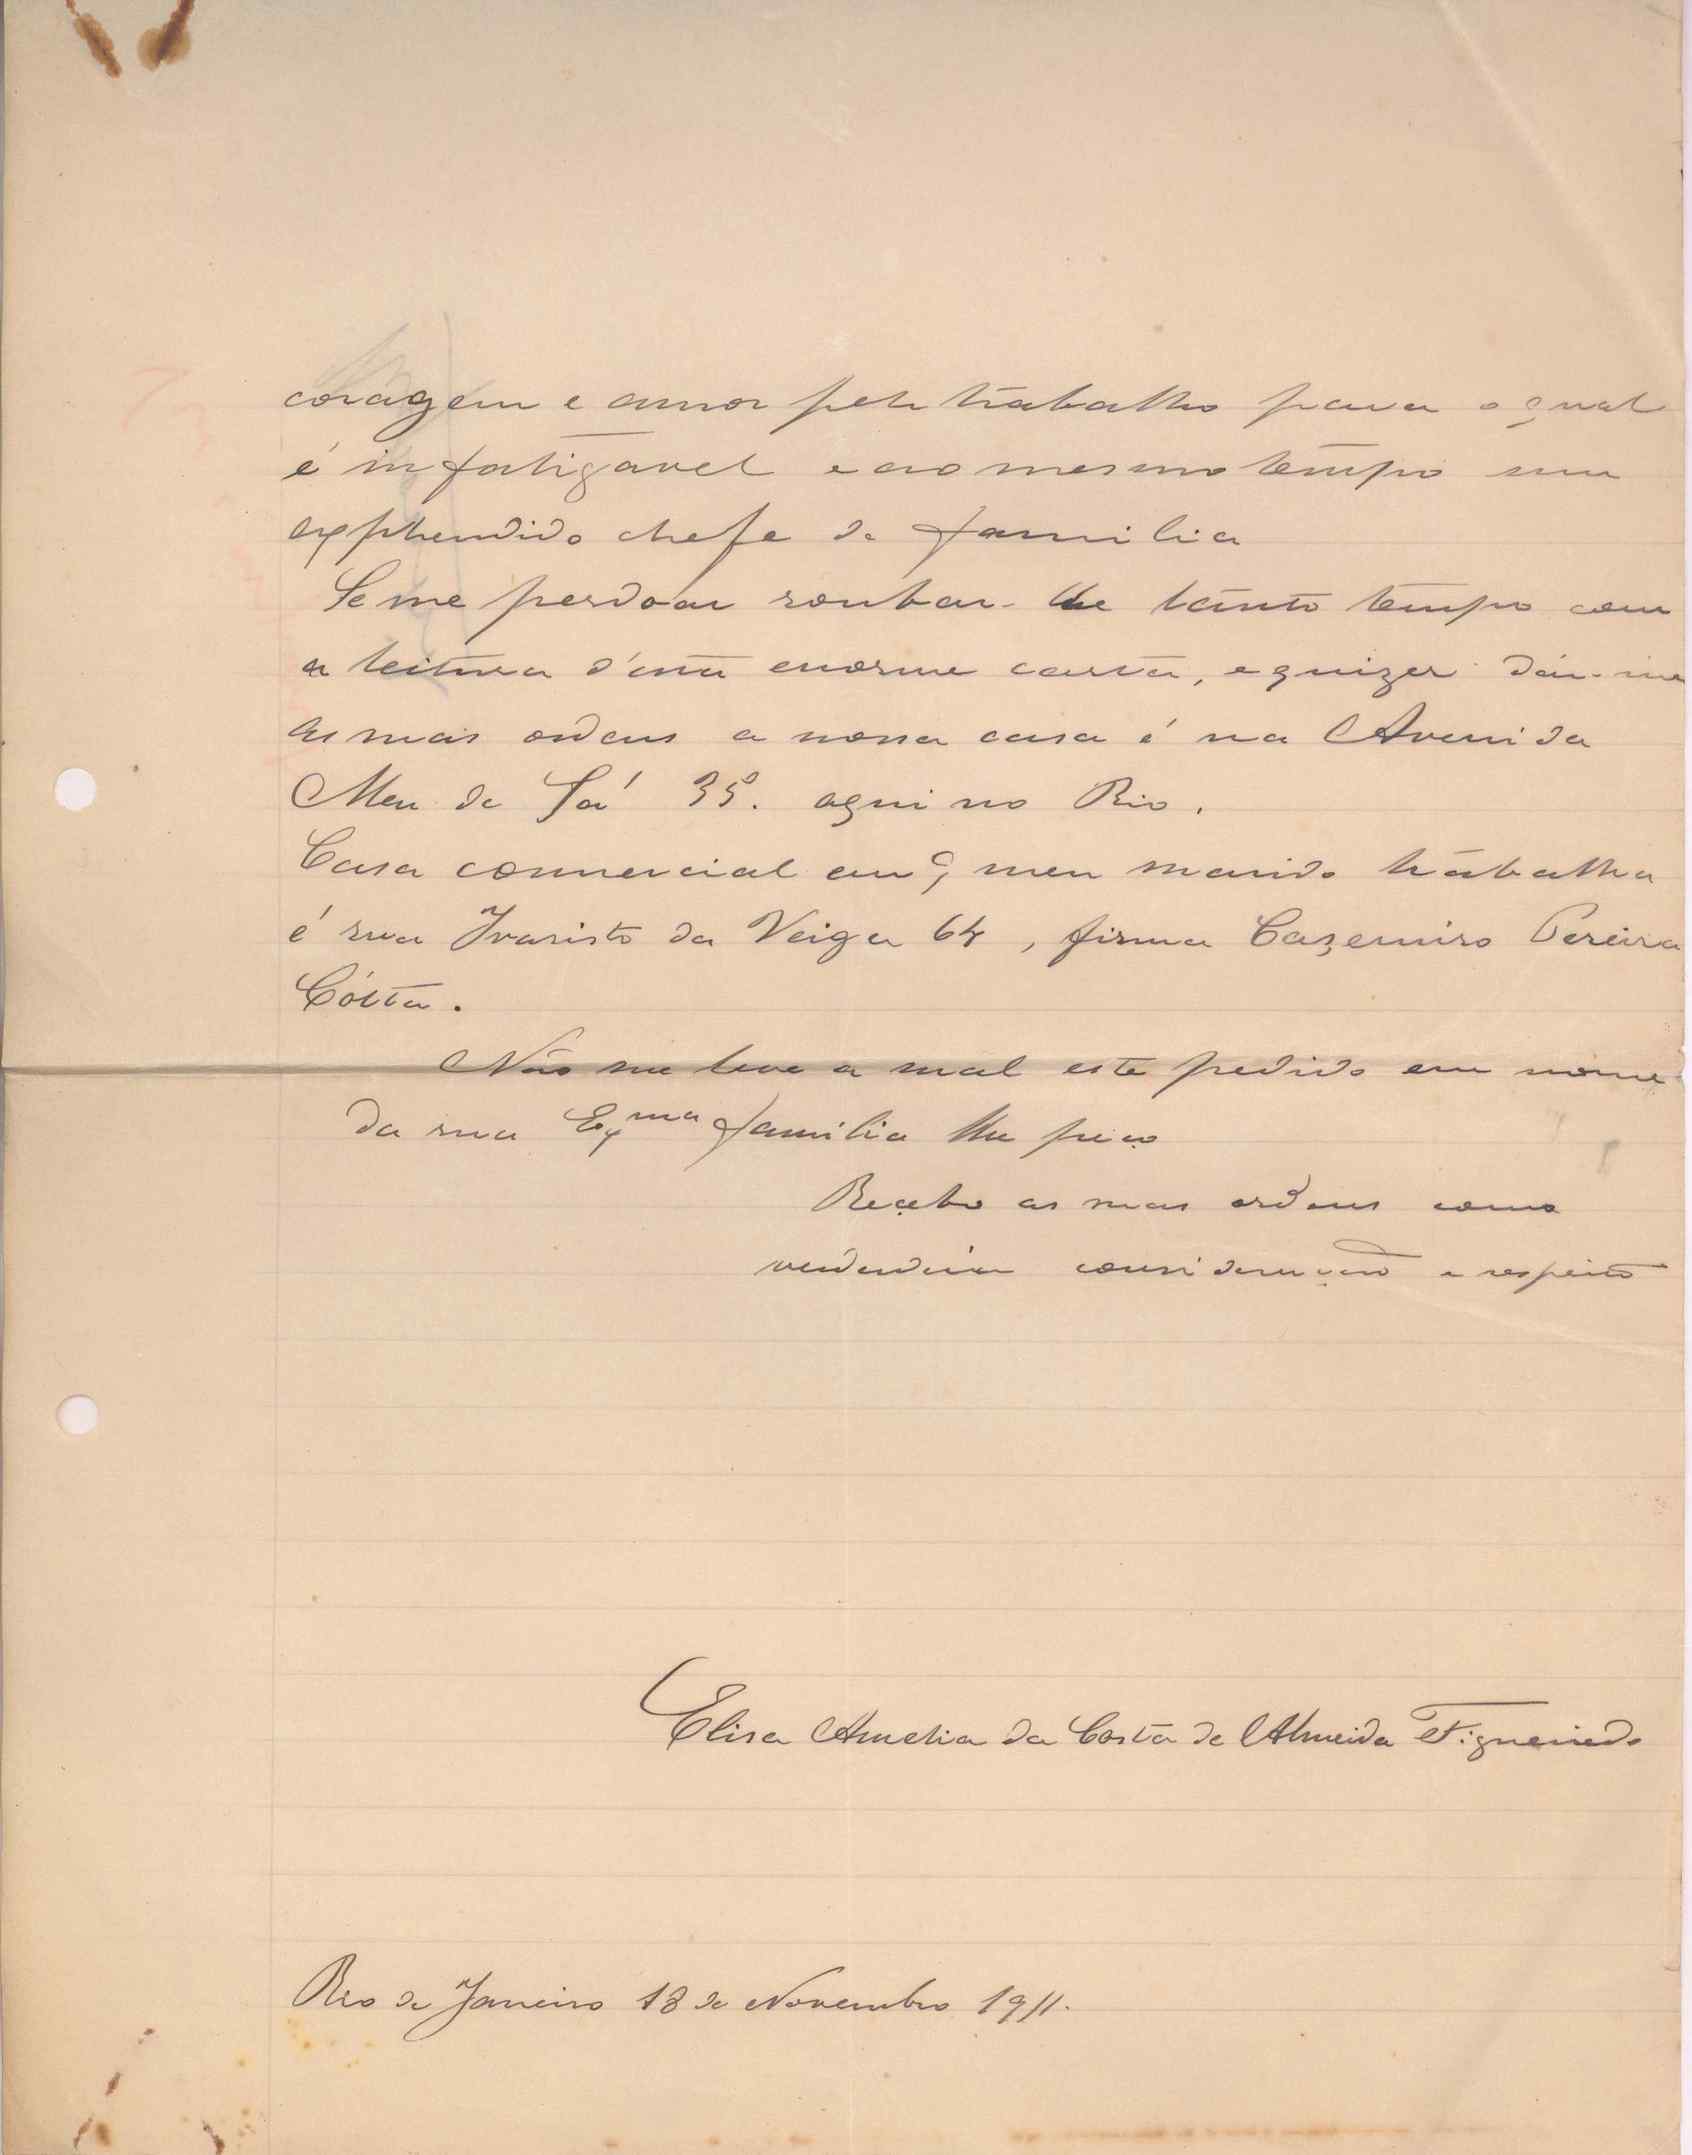 coragem e amor pelo trabalho para o qual
é infatigavel e ao mesmo tempo um
explendido chefe de familia
Se me perdoar roubar-lhe tanto tempo com
a leitura d'esta enorme carta, e quizer dár-me
as suas ordens a nossa casa é na Avenida
Meu de Sá 35. aqui no Rio.
Casa commercial em q̃ meu marido trabalha
é rua Ivaristo da Veiga 64, firma Cazemiro Pereira
Cótta.
Não me leve a mal este pedido em nome
da sua Exma familia lhe peço
Recebo as suas ordens como
verdadeira consideração e respeito
Elisa Amelia da Costa de Almeida Figueiredo
Rio de Janeiro 18 de Novembro 1911.